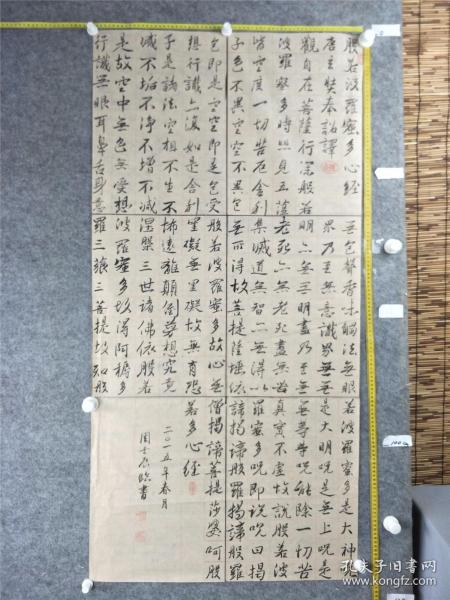 般若波羅蜜多心經
唐玄奘奉詔譯
觀自在菩薩行深般若
波羅蜜多時照見五蘊
皆空度一切苦厄舍利
子色不異空空不異色
色即是空空即是色受
想行識亦復如是舍利
子是諸法空相不生不
滅不垢不淨不增不減
是故空中無色無受想
行識無眼耳鼻舌身意
無色聲香味觸法無眼
界乃至無意識界無無
明亦無無明盡乃至無
老死亦無老死盡無苦
集滅道無智亦無得以
無所得故菩提薩埵依
般若波羅蜜多故心無
罣礙無罣礙故無有恐
怖遠離顛倒夢想究竟
涅槃三世諸佛依般若
波羅蜜多故得阿耨多
羅三藐三菩提故知般
若波羅蜜多是大神咒
是大明咒是無上咒是
無等等咒能除一切苦
真實不虛故說般若波
羅蜜多咒即說咒曰揭
諦揭諦般羅揭諦般羅
僧揭諦菩提莎婆呵般
若多心經
二〇一五年春月
臨書
100cm
孔夫子旧书网